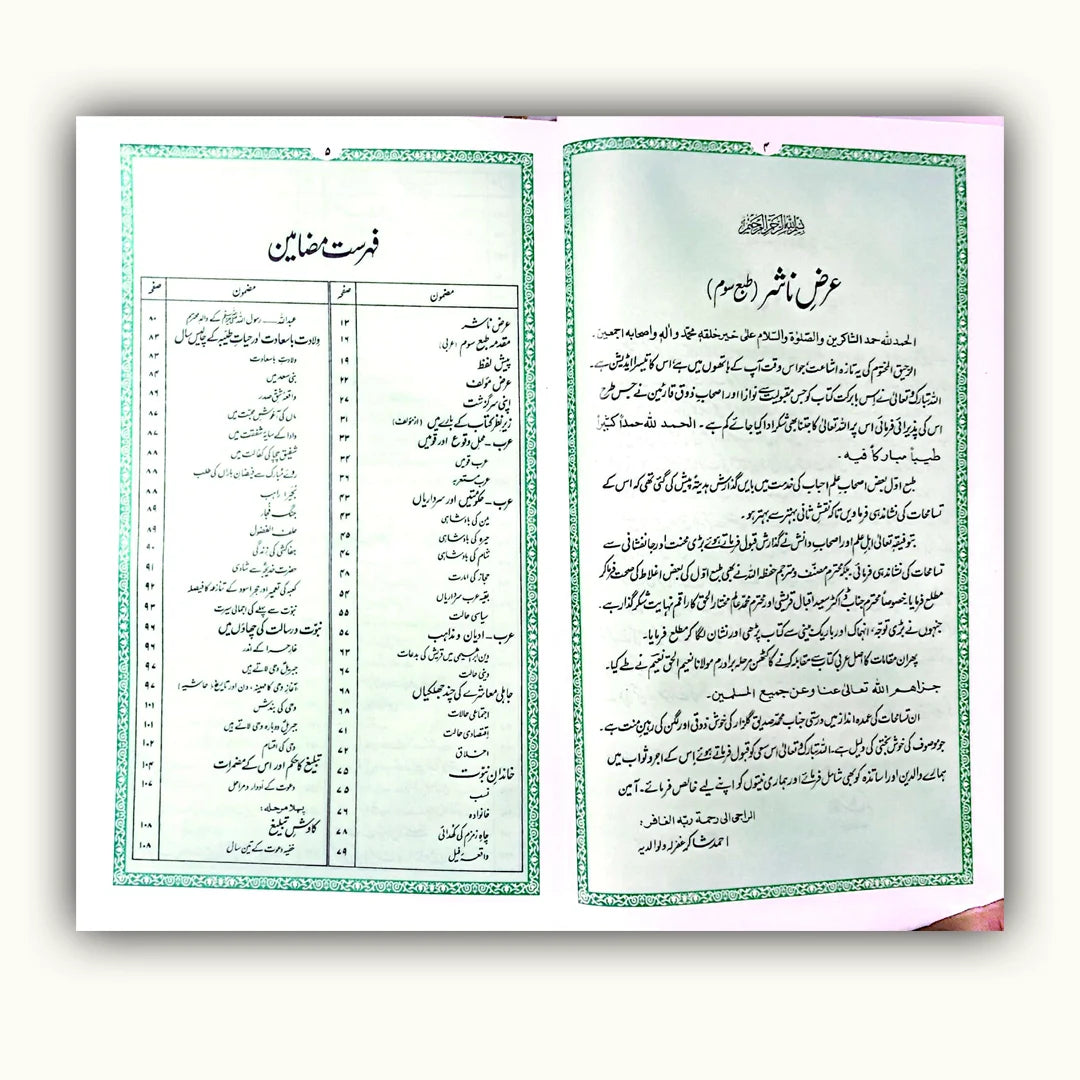 ۴
بسم اللہ الرحمن الرحیم
عرضِ ناشر (طبع سوم)
الحمد للہ حمد الشاکرین والصلوٰۃ والسّلام علیٰ خیر خلقہٖ محمّد وآلہٖ واصحابہٖ اجمعین۔
الرحیق المختوم کی یہ تازہ اشاعت جو اس وقت آپ کے ہاتھوں میں ہے اس کا تیسرا ایڈیشن ہے۔
اللہ تبارک و تعالیٰ نے اس بابرکت کتاب کو جس مقبولیت سے نوازا اور اصحابِ ذوق قارئین نے جس طرح
اس کی پذیرائی فرمائی اس پر اللہ تعالیٰ کا جتنا بھی شکر ادا کیا جائے کم ہے۔ الحمد للہ حمداً کثیراً
طیباً مبارکاً فیہ۔
طبع اوّل بعض اصحابِ علم احباب کی خدمت میں بایں گذارش ہدیۃً پیش کی گئی تھی کہ اس کے
تسامحات کی نشاندہی فرما دیں تاکہ نقشِ ثانی بہتر سے بہتر ہو۔
بتوفیقہٖ تعالیٰ اہلِ علم اور اصحابِ دانش نے گذارش قبول فرماتے ہوئے بڑی محنت اور جانفشانی سے
تسامحات کی نشاندہی فرمائی۔ بلکہ محترم مصنّف و مترجم حفظہ اللہ نے بھی طبع اوّل کی بعض اغلاط کی صحت فرما کر
مطلع فرمایا۔ خصوصاً محترم جناب ڈاکٹر سعید اقبال قریشی اور محترم محمد عالم مختار الحق کا راقم نہایت شکر گذار ہے۔
جنہوں نے بڑی توجہ، انہماک اور باریک بینی سے کتاب پڑھی اور نشان لگا کر مطلع فرمایا۔
پھر ان مقامات کا اصل عربی کتاب سے مقابلہ کرنے کا کٹھن مرحلہ برادرم مولانا نعیم الحق نعیم نے طے کیا۔
جزاھم اللہ تعالیٰ عنا وعن جمیع المسلمین۔
ان تسامحات کی عمدہ انداز میں درستی جناب محمد صدیق گلزار کی خوش ذوقی اور لگن کی رہینِ منت ہے۔
جو موصوف کی خوش بختی کی دلیل ہے۔ اللہ تبارک و تعالیٰ اس سعی کو قبول فرماتے ہوئے اس کے اجر و ثواب میں
ہمارے والدین اور اساتذہ کو بھی شامل فرمائے اور ہماری نیتوں کو اپنے لیے خالص فرمائے۔ آمین
الراجی الی رحمۃ ربّہ الغافر:
احمد شاکر غفرلہٗ ولوالدیہ
۵
فہرست مضامین
مضمون صفحہ
عرض ناشر ۱۳
مقدمہ طبع سوم (عربی) ۱۶
پیش لفظ ۱۹
عرض مؤلف ۲۲
اپنی سرگزشت ۲۷
زیرِ نظر کتاب کے بارے میں (از مؤلف) ۳۱
عرب۔ محل وقوع اور قومیں ۳۳
عرب قومیں ۳۴
عرب مستعربہ ۳۶
عرب۔ حکومتیں اور سرداریاں ۴۳
یمن کی بادشاہی ۴۳
حیرہ کی بادشاہی ۴۵
شام کی بادشاہی ۴۷
حجاز کی امارت ۴۸
بقیہ عرب سرداریاں ۵۴
سیاسی حالت ۵۵
عرب۔ ادیان و مذاہب ۵۷
دین ابراہیمی میں قریش کی بدعات ۶۳
دینی حالت ۶۷
جاہلی معاشرے کی چند جھلکیاں ۶۸
اجتماعی حالات ۶۸
اقتصادی حالت ۷۱
اخلاق ۷۲
خاندانِ نبوّت ۷۵
نسب ۷۵
خانوادہ ۷۶
چاہِ زمزم کی کھدائی ۷۸
واقعۂ فیل ۷۹
مضمون صفحہ
عبداللہ — رسول اللہ ﷺ کے والد محترم ۸۰
ولادت باسعادت اور حیاتِ طیبہ کے چالیس سال ۸۳
ولادت باسعادت ۸۳
بنی سعد میں ۸۴
واقعۂ شق صدر ۸۶
ماں کی آغوشِ محبت میں ۸۷
دادا کے سایۂ شفقت میں ۸۷
شفیق چچا کی کفالت میں ۸۸
روئے مبارک سے فیضانِ باراں کی طلب ۸۸
بحیرا راہب ۸۸
جنگ فجار ۸۹
حلف الفضول ۸۹
جفاکشی کی زندگی ۹۰
حضرت خدیجہؓ سے شادی ۹۱
کعبہ کی تعمیر اور حجر اسود کے تنازعہ کا فیصلہ ۹۲
نبوّت سے پہلے کی اجمالی سیرت ۹۳
نبوّت و رسالت کی چھاؤں میں ۹۶
غارِ حرا کے اندر ۹۶
جبریلؑ وحی لاتے ہیں ۹۷
آغازِ وحی کا مہینہ، دن اور تاریخ (حاشیہ) ۹۷
وحی کی بندش ۱۰۱
جبریلؑ دوبارہ وحی لاتے ہیں ۱۰۱
وحی کی اقسام ۱۰۲
تبلیغ کا حکم اور اس کے مضمرات ۱۰۴
دعوت کے ادوار و مراحل ۱۰۷
پہلا مرحلہ:
کاوشِ تبلیغ ۱۰۸
خفیہ دعوت کے تین سال ۱۰۸